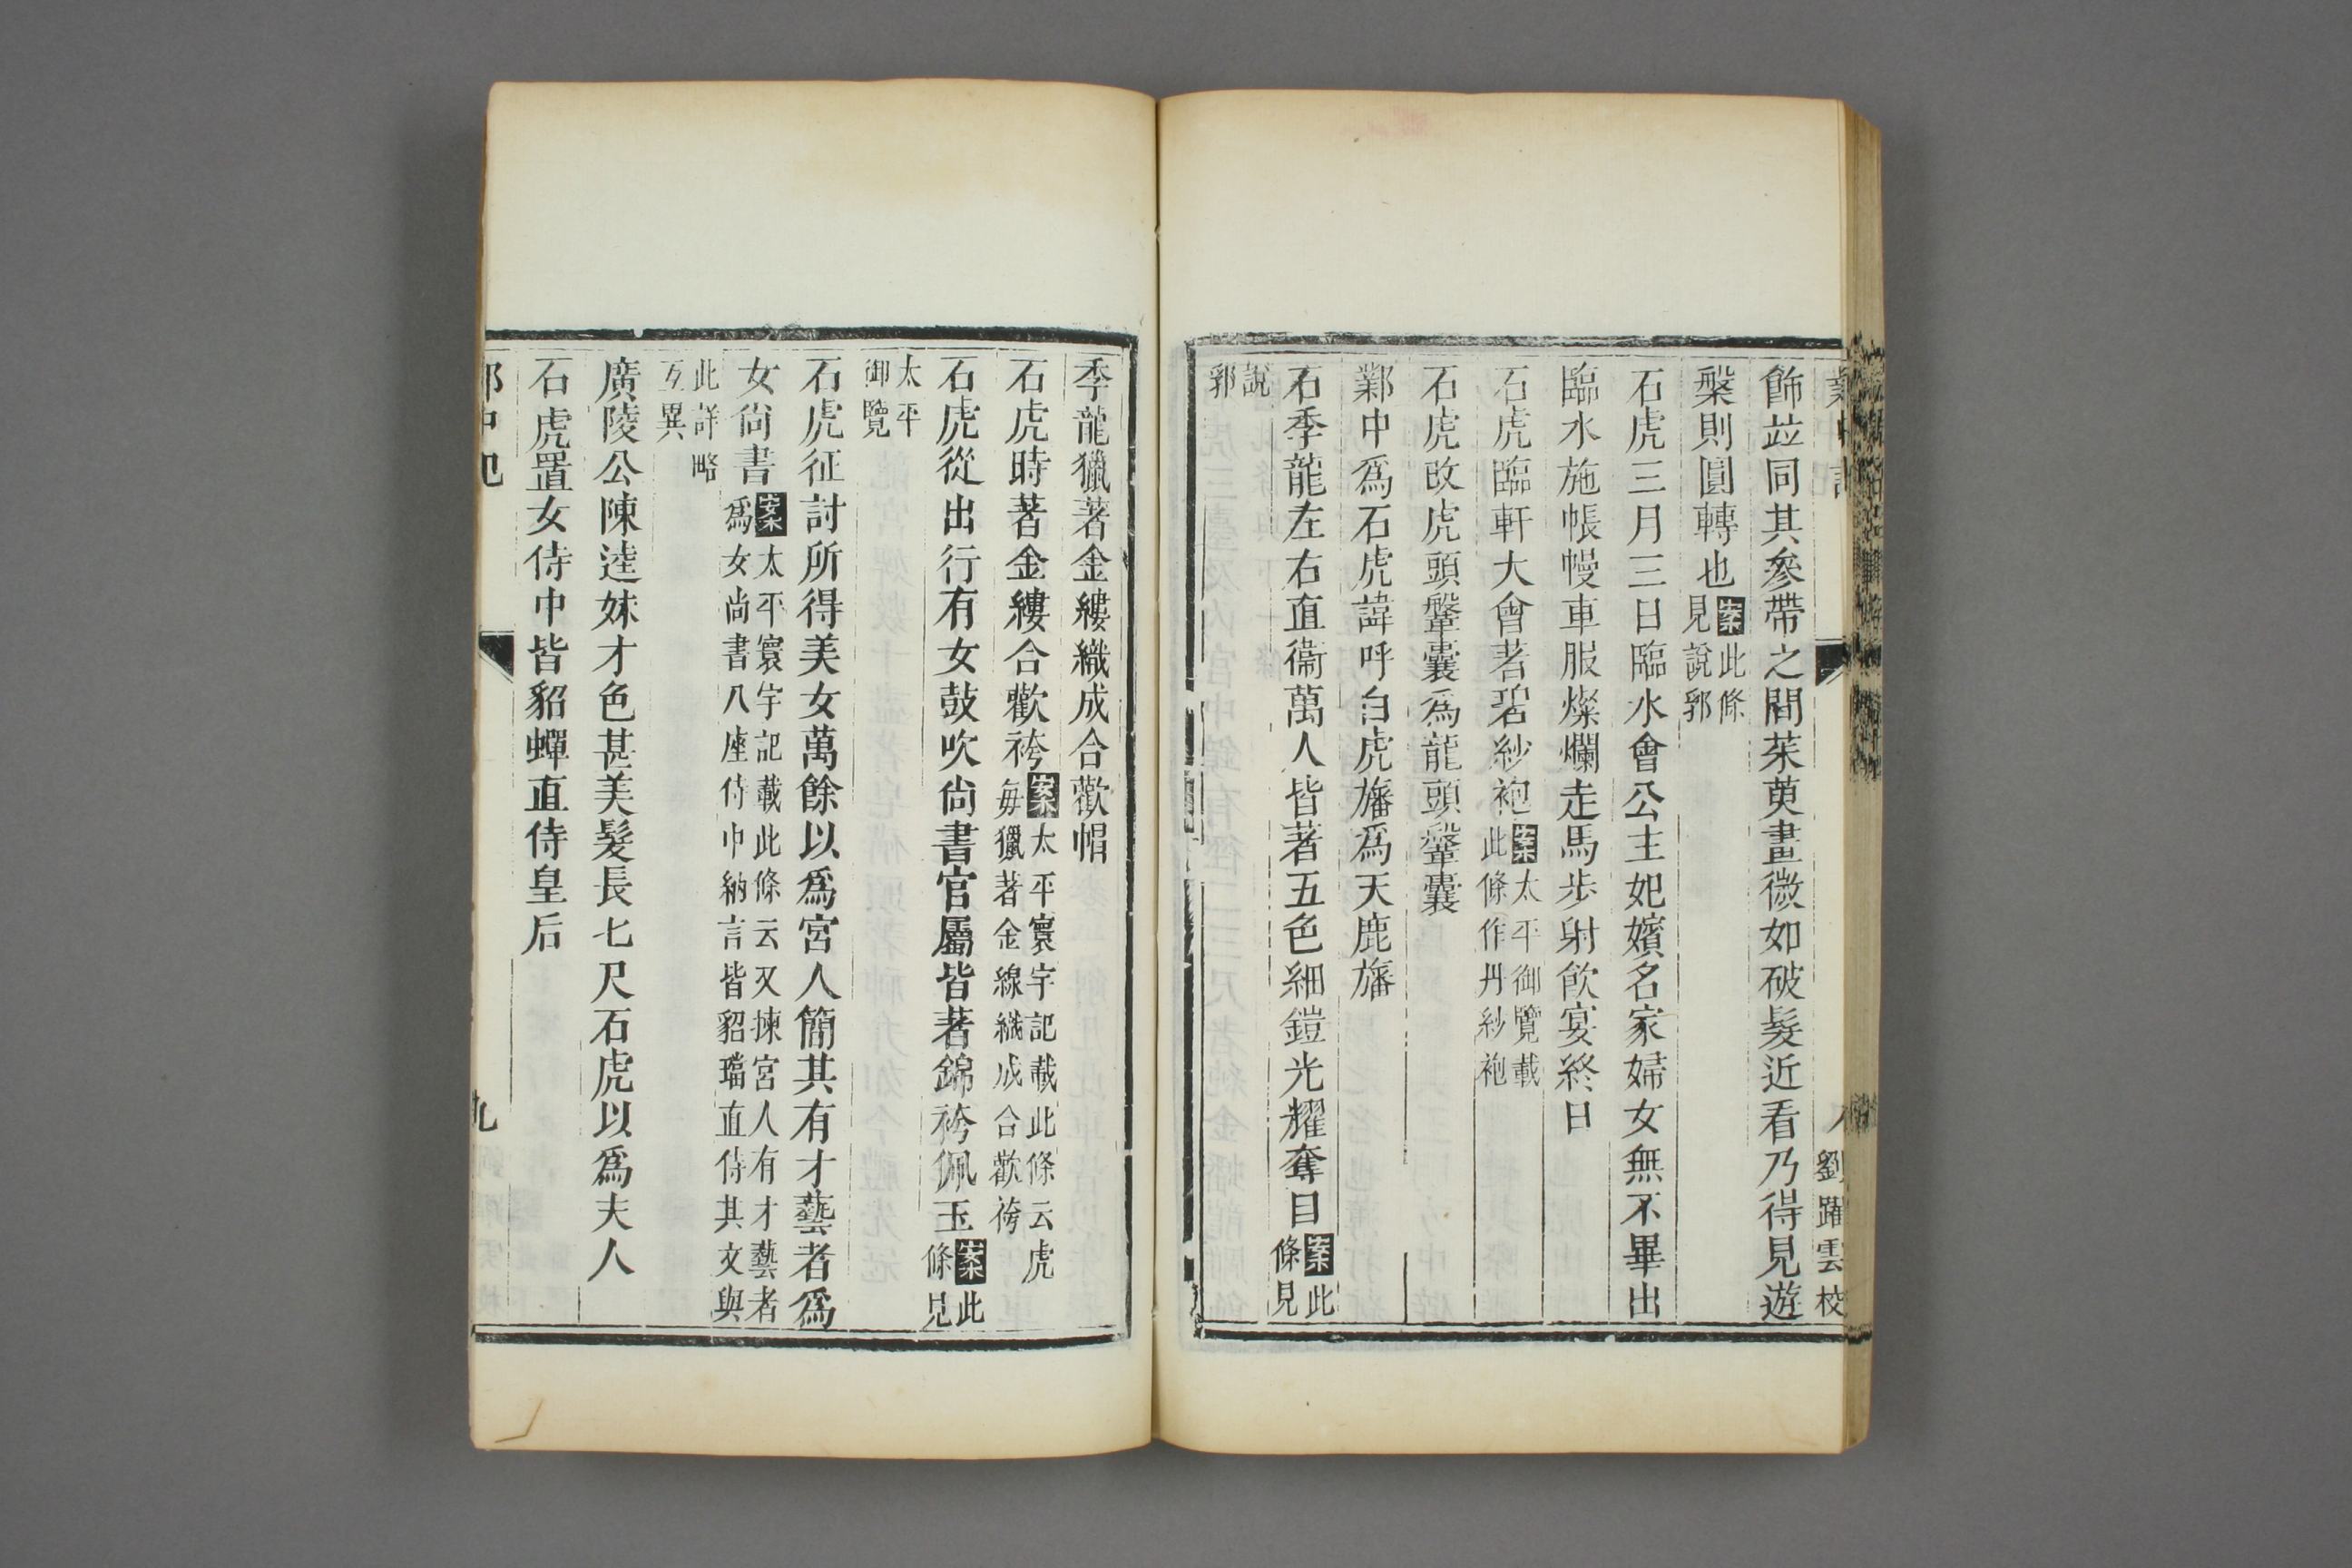 飾竝同其參帶之間茱萸畫微如破髮近看乃得見遊
槃則圓轉也案此條見說郛
石虎三月三日臨水會公主妃嬪名家婦女無不畢出
臨水施帳幔車服燦爛走馬步射飲宴終日
石虎臨軒大會著碧紗袍案太平御覽載此條作丹紗袍
石虎改虎頭鞶囊爲龍頭鞶囊
鄴中爲石虎諱呼白虎旛爲天鹿旛
石季龍左右直衞萬人皆著五色細鎧光耀奪目案此條見
說郛
劉躍雲校
季龍獵著金縷織成合歡帽
石虎時著金縷合歡袴案太平寰宇記載此條云虎每獵著金線織成合歡袴
石虎從出行有女鼓吹尙書官屬皆著錦袴佩玉案此條見
太平御覽
石虎征討所得美女萬餘以爲宮人簡其有才藝者爲
女尙書案太平寰宇記載此條云又揀宮人有才藝者爲女尙書八座侍中納言皆貂璫直侍其文與
此詳略互異
廣陵公陳逵妹才色甚美髮長七尺石虎以爲夫人
石虎置女侍中皆貂蟬直侍皇后
九